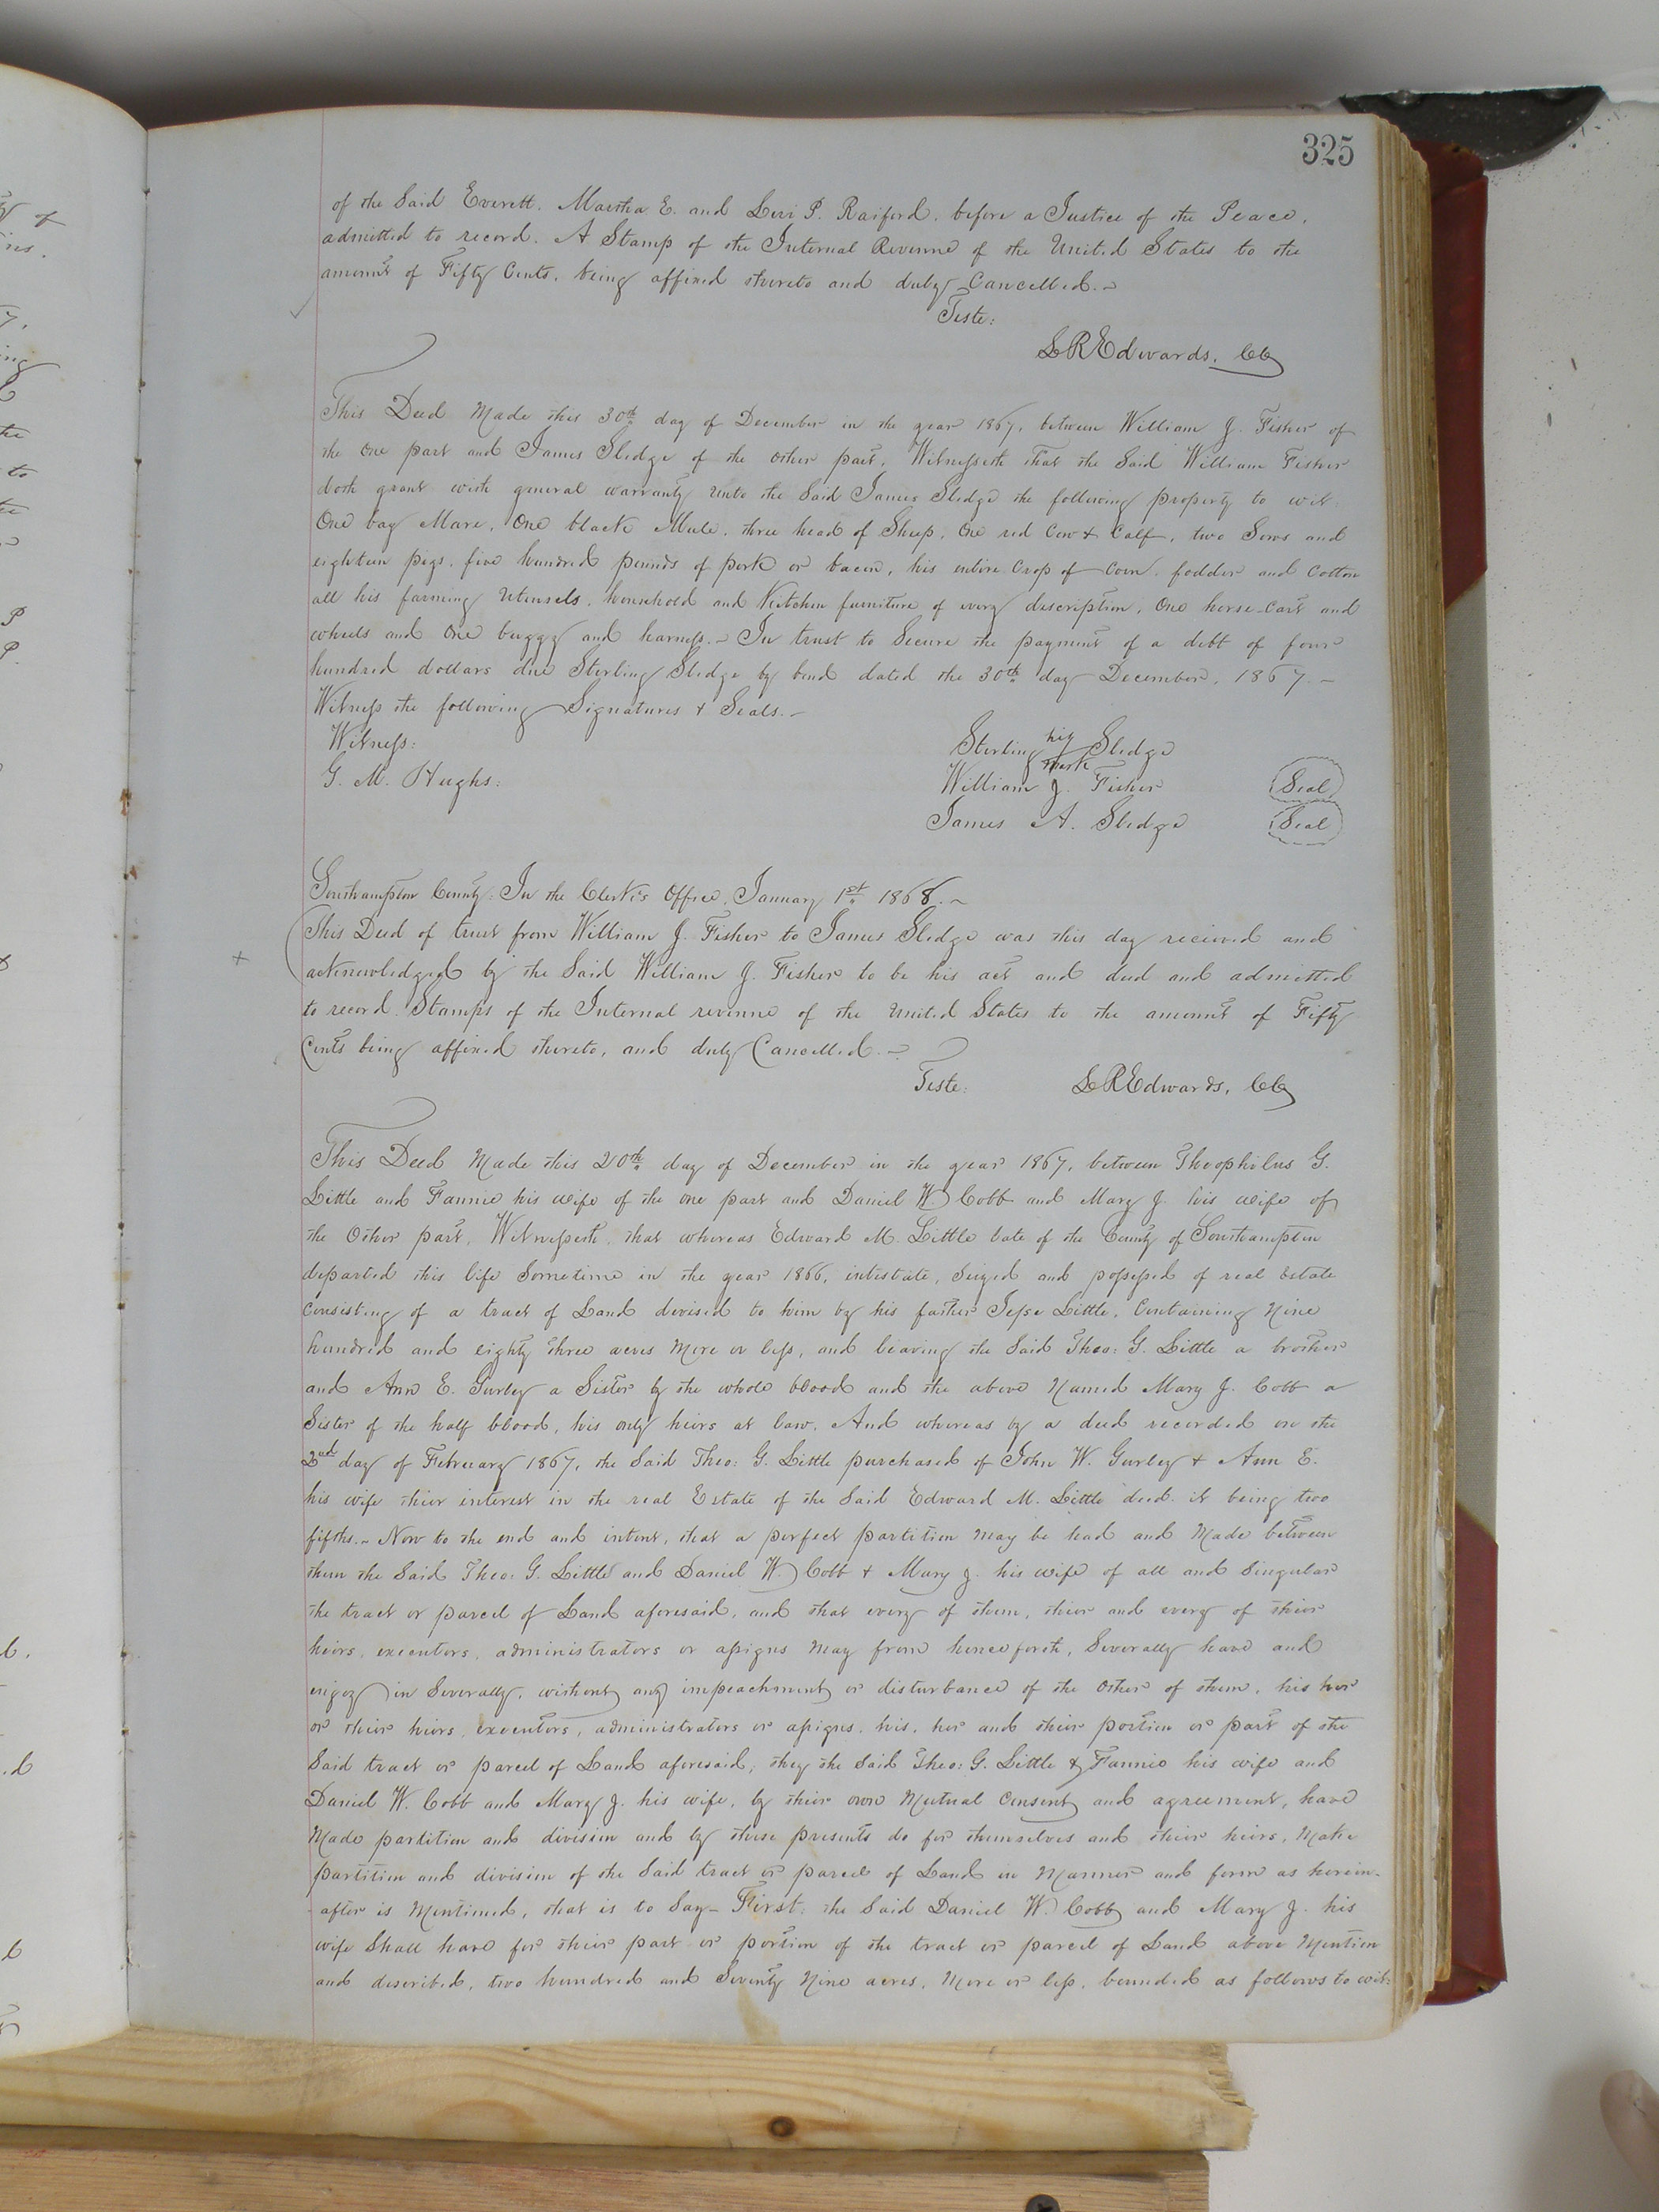 325
of the Said Everett. Martha E. and Levi P. Raiford. before a Justice of the Peace,
admitted to record. A Stamp of the Internal Revenue of the United States to the
amount of Fifty Cents. being affixed thereto and duly Cancelled.~
Teste:
LREdwards. CC
This Deed Made this 30th day of December in the year 1867, between William J. Fisher of
the one part and James Sledge of the other part, Witnesseth that the Said William Fisher
doth grant with general warranty unto the Said James Sledge the following property to wit:
One bay Mare, One black Mule, three head of Sheep, One red Cow & Calf, two Sows and
eighteen pigs, five hundred pounds of pork or bacon, his entire Crop of Corn, fodder and Cotton
all his farming Utensels, household and Kitchen furniture of every description, One horse-Cart and
wheels and One buggy and harness.~ In trust to Secure the payment of a debt of four
hundred dollars due Sterling Sledge by bond dated the 30th day December, 1867.~
Witness the following Signatures & Seals.~
Witness:
G. M. Hughs:
Sterling his Sledge
mark
William J. Fisher Seal
James A. Sledge Seal
Southampton County: In the Clerk's Office, January 1st 1868.~
This Deed of trust from William J. Fisher to James Sledge was this day recieved and
+ acknowledged by the Said William J. Fisher to be his act and deed and admitted
to record. Stamps of the Internal revenue of the United States to the amount of Fifty
Cents being affixed thereto, and duly Cancelled.~
Teste: LREdwards, CC
This Deed Made this 20th day of December in the year 1867, between Theophilus G.
Little and Fannie his wife of the one part and Daniel W Cobb and Mary J. his wife of
the Other part, Witnesseth, that whereas Edward M. Little late of the County of Southampton
departed this life Sometime in the year 1866, intestate, Seized and possessed of real Estate
Consisting of a tract of Land devised to him by his father Jesse Little, Containing Nine
hundred and eighty three acres More or less, and leaving the Said Theo: G. Little a brother
and Ann E. Gurley a Sister by the whole blood and the above Named Mary J. Cobb a
Sister of the half blood, his only heirs at law, And whereas by a deed recorded on the
2nd day of February 1867, the Said Theo: G. Little purchased of John W. Gurley & Ann E.
his wife their interest in the real Estate of the Said Edward M. Little decd. it being two
fifths.~ Now to the end and intent, that a perfect partition May be had and Made between
them the Said Theo: G. Little and Daniel W. Cobb & Mary J. his wife of all and Singular
the tract or parcel of Land aforesaid, and that every of them, their and every of their
heirs, executors, administrators or assigns May from henceforth, Severally have and
enjoy in Severally, without any impeachment or disturbance of the Other of them, his her
or their heirs, executors, administrators or assigns, his, her and their portion or part of the
Said tract or parcel of Land aforesaid; they the Said Theo: G. Little & Fannie his wife and
Daniel W. Cobb and Mary J. his wife, by their own Mutual Consent and agreement, have
Made partition and division and by these presents do for themselves and their heirs, Make
partition and division of the Said tract or parcel of Land in Manner and form as herein-
after is Mentioned, that is to Say- First: the Said Daniel W. Cobb and Mary J. his
wife Shall have for their part or portion of the tract or parcel of Land above Mention
and described, two hundred and Seventy Nine acres, More or less, bounded as follows to wit: